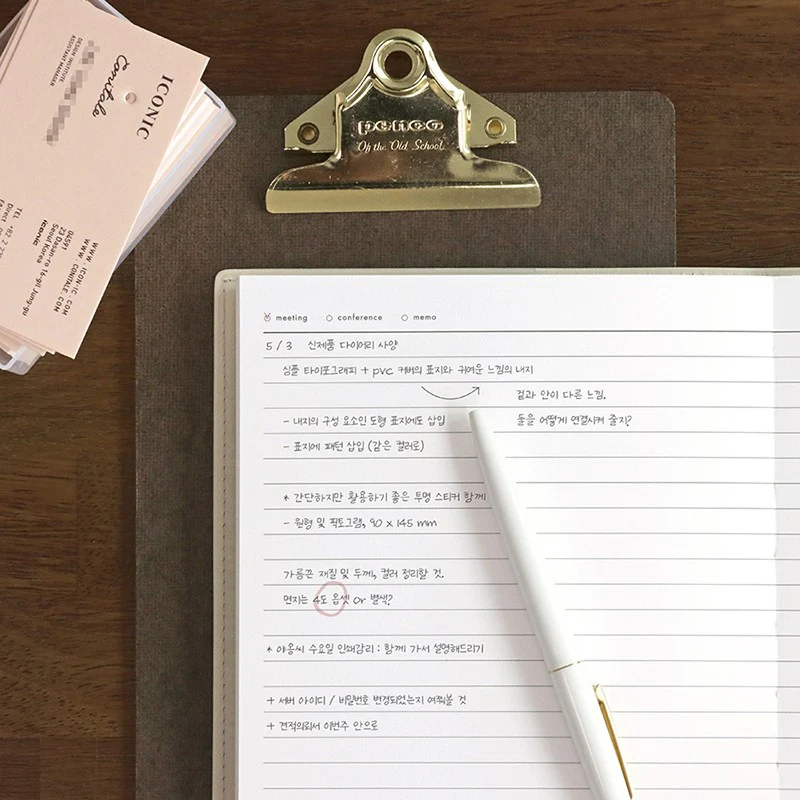 ICONIC
Contale
DESIGN INSTITUTE
ASSISTANT MANAGER
WWW.ICON-IC.COM
WWW.CONTALE.COM
04591
23 Dasan-ro 16-gil Jung-gu
Seoul Korea
iconic
penco
Of the Old School.
meeting conference memo
5 / 3 신제품 다이어리 사양
심플 타이포그래피 + pvc 커버의 표지와 귀여운 느낌의 내지
겉과 안이 다른 느낌.
- 내지의 구성 요소인 도형 표지에도 삽입
둘을 어떻게 연결시켜 줄지?
- 표지에 패턴 삽입 (같은 컬러로)
* 간단하지만 활용하기 좋은 투명 스티커 함께
- 원형 및 픽토그램, 90 x 145 mm
가름끈 재질 및 두께, 컬러 정리할 것.
면지는 4도 옵셋 or 별색?
* 야옹씨 수요일 인쇄감리 : 함께 가서 설명해드리기
+ 서버 아이디 / 비밀번호 변경되었는지 여쭤볼 것
+ 견적의뢰서 이번주 안으로